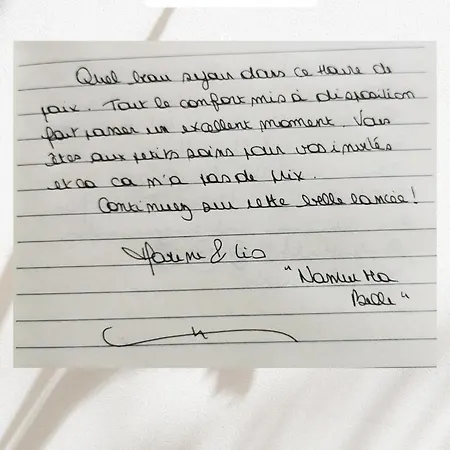 Quel beau séjour dans ce Havre de
paix. Tout le confort mis à disposition
fait passer un excellent moment. Vous
êtes aux petits soins pour vos invités
et ça ça n'a pas de prix.
Continuez sur cette belle lancée!
& Léo
"Namur Ma
Belle"